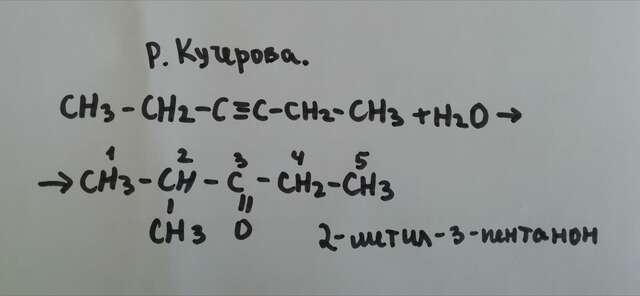 р. Кучерова.
CH3-CH2-C≡C-CH2-CH3+H2O→
1 2 3 4 5
→CH3-CH-C-CH2-CH3
CH3 O 2-метил-3-пентанон